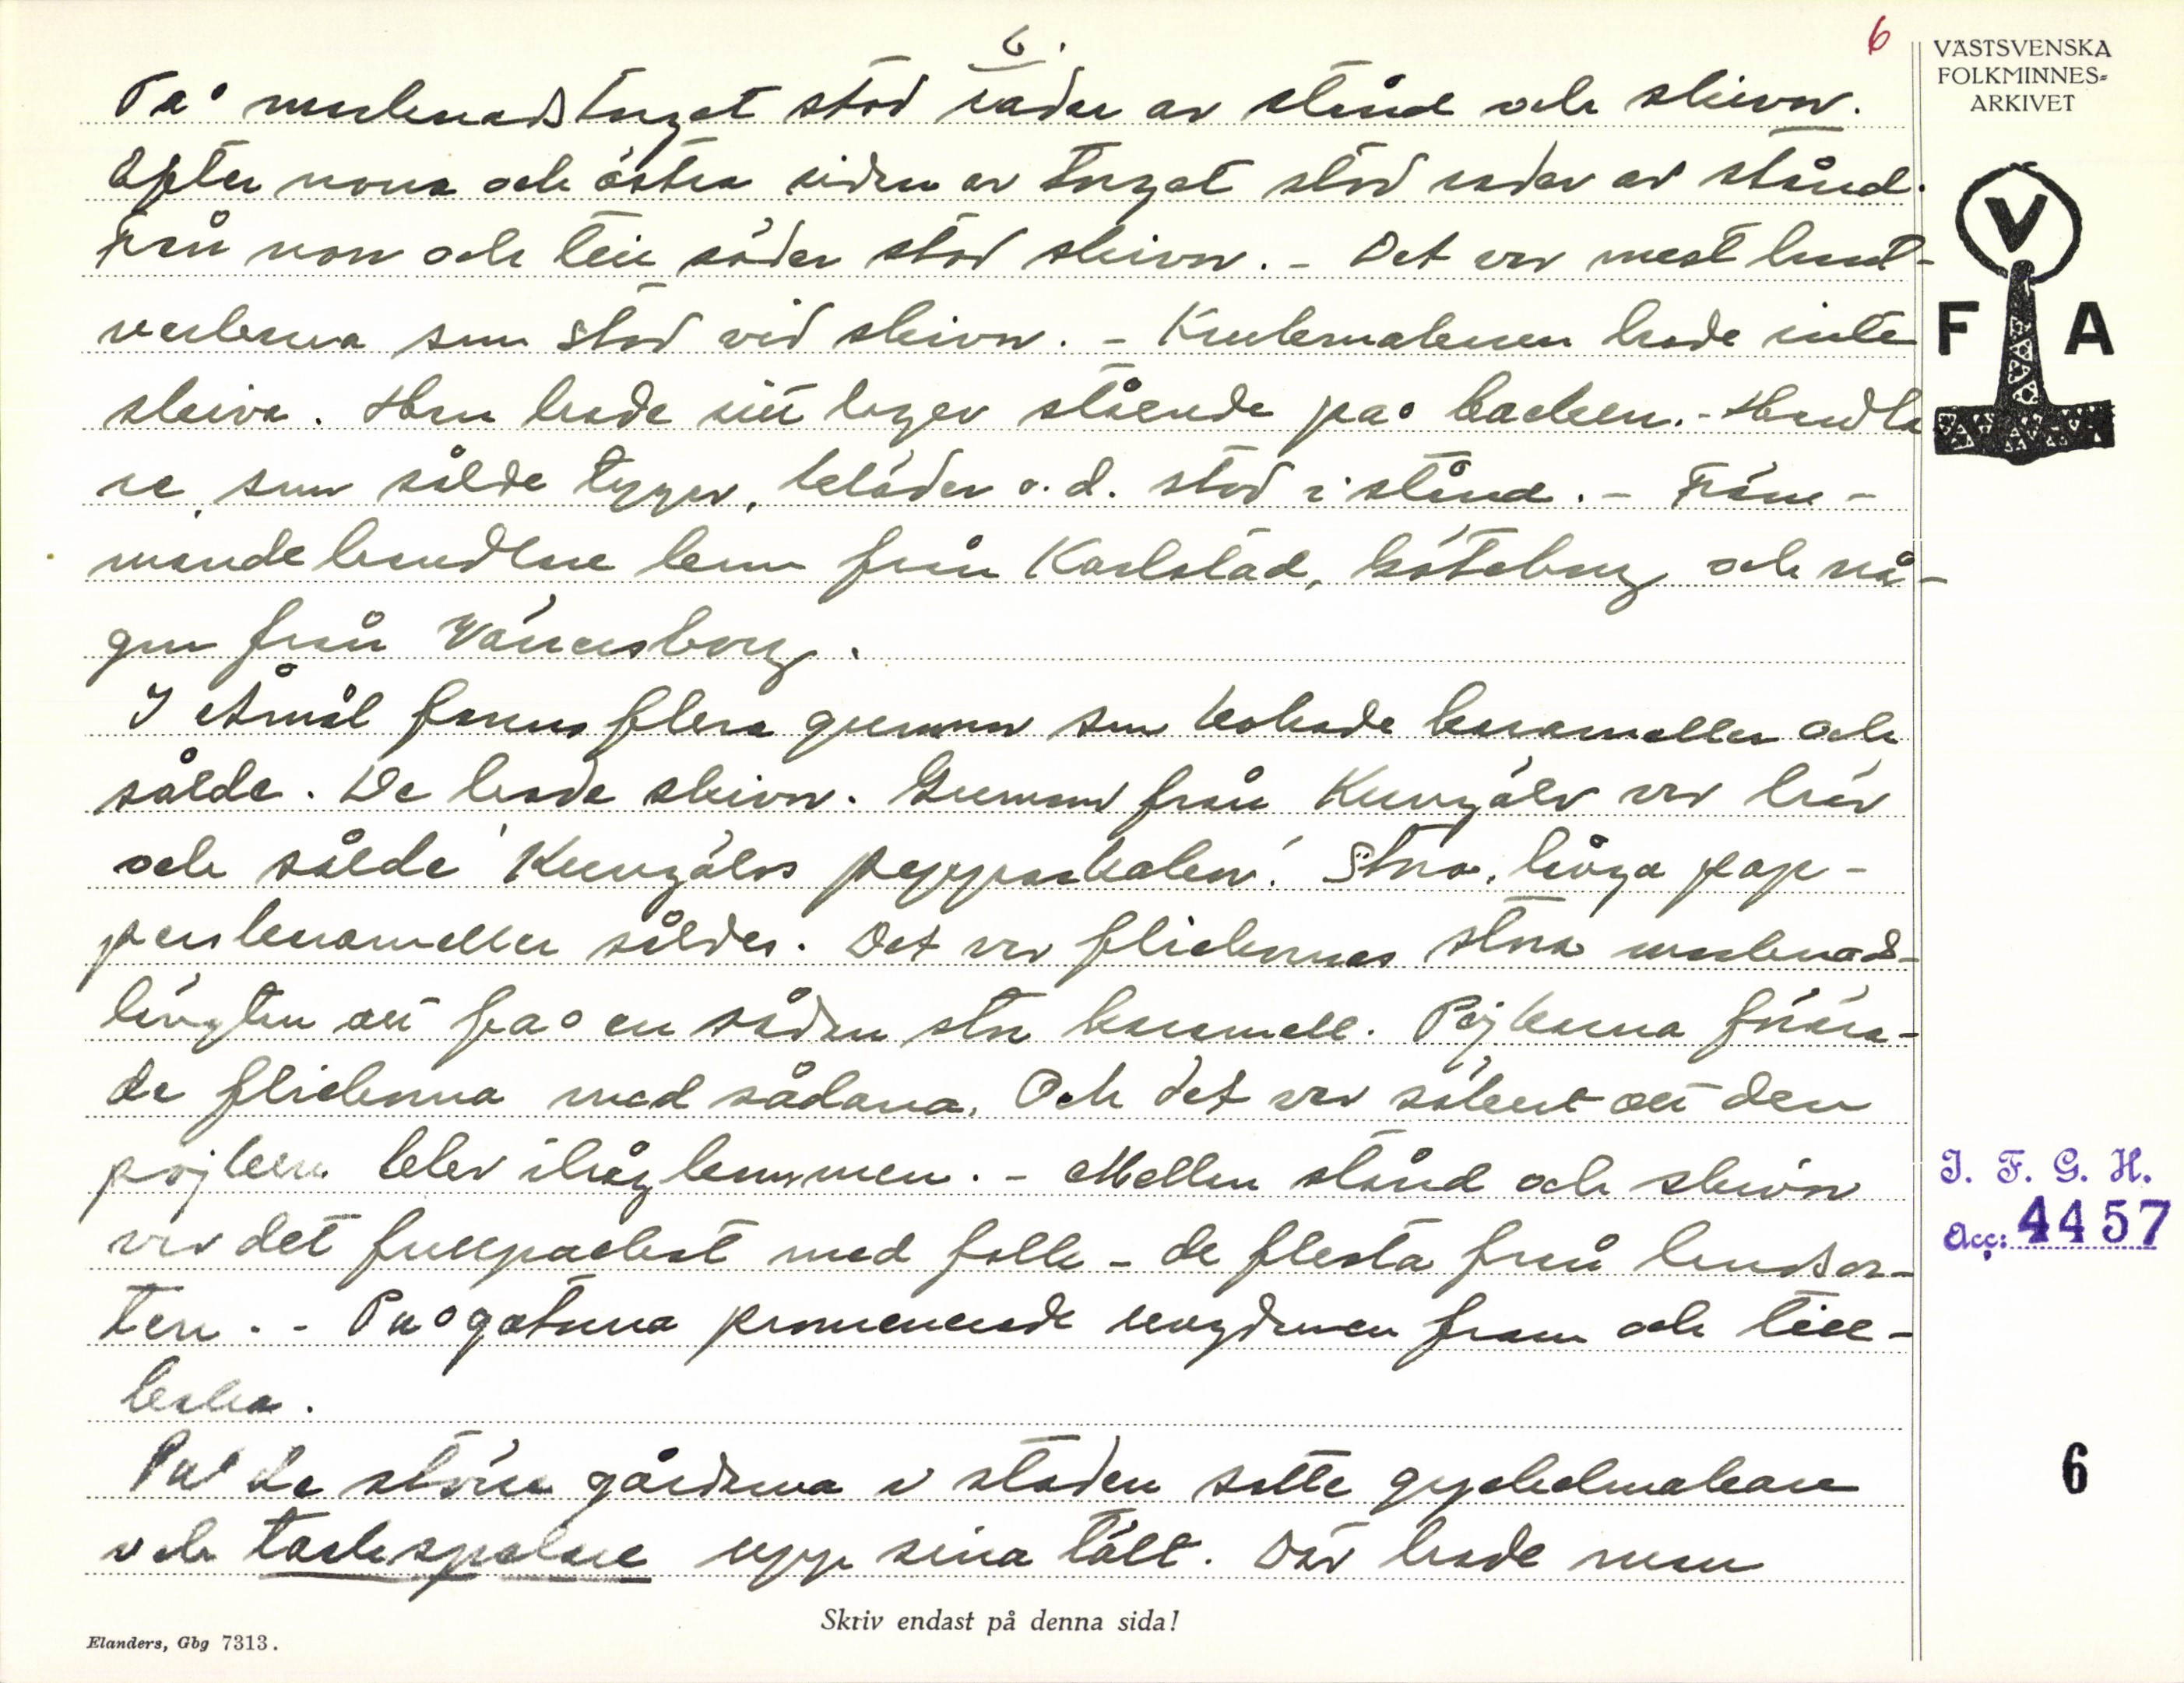 6.
6
VÄSTSVENSKA
FOLKMINNES=
ARKIVET
På marknadstorget stod rader av stånd och skivor.
Efter norra och östra sidan av torget stod rader av stånd.
Från norr och till söder stod skivor. - Det var mest hant-
verkarna som stod vid skivor. - Krukmakaren hade inte
skiva. Han hade sitt lager stående på backen. - Handla
re, som sålde tyger, kläder o. d. stod i stånd. - Främ-
mande handlare kom från Karlstad, Göteborg och nå-
gon från Vänersborg.
I Åmål fanns flera gummor som kokade karameller och
sålde. De hade skivor. Gummor från Kungälv var här
och sålde "Kungälvs pepparkakor". Stora, långa pap-
perskarameller såldes. Det var flickornas stora marknads-
längtan att få en sådan stor karamell. Pojkarna förära-
de flickorna med sådana. Och det var säkert att den
pojken blev ihågkommen. - Mellan stånd och skivor
var det fullpackat med folk - de flesta från landsor-
ten. - På gatorna promenerade ungdomen fram och till-
baka.
På de större gårdarna i staden satte gyckelmakare
och taskspelare upp sina tält. Där hade man
V
F A
I. F. G. H.
Acc: 4457
6
Skriv endast på denna sida!
Elanders, Gbg 7313.